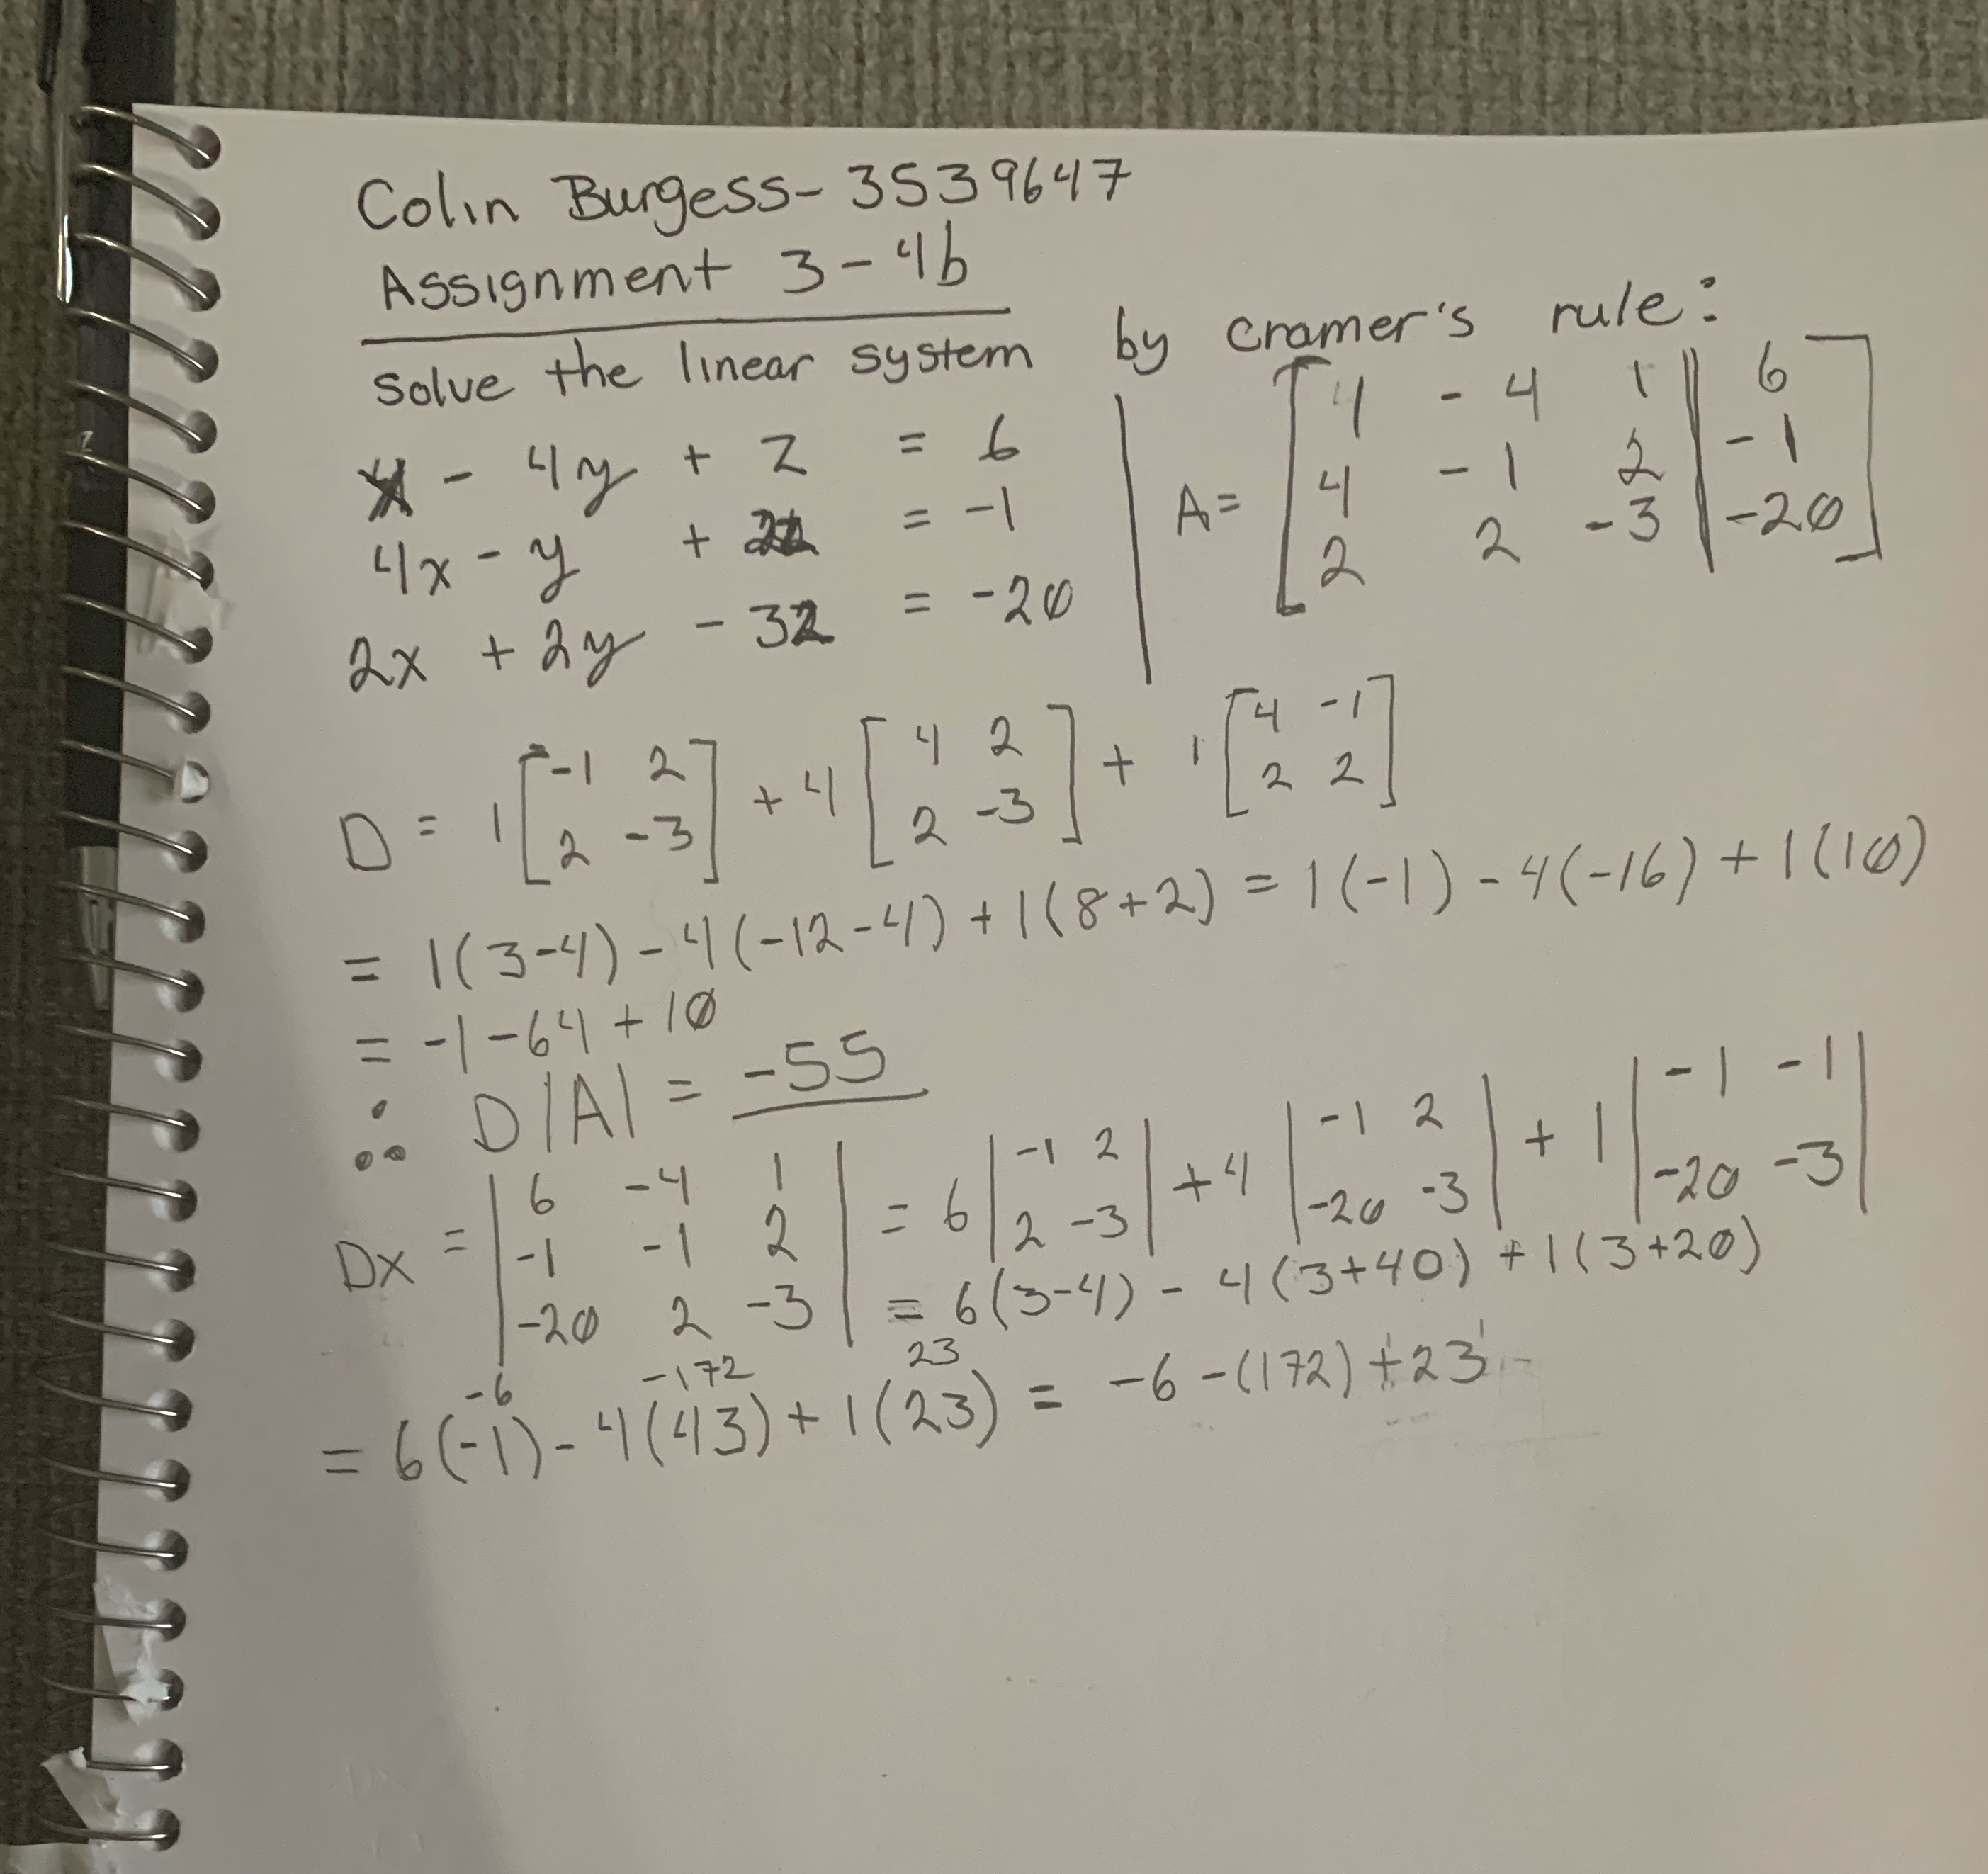 Colin Burgess - 3539647
Assignment 3 - 4b
Solve the linear system by cramer's rule:
x - 4y + z = 6
4x - y + 2z = -1
2x + 2y - 3z = -20
A = [ 1 -4 1 | 6 ]
[ 4 -1 2 | -1 ]
[ 2 2 -3 | -20 ]
D = 1 [ -1 2 ] + 4 [ 4 2 ] + 1 [ 4 -1 ]
[ 2 -3 ] [ 2 -3 ] [ 2 2 ]
= 1(3-4) - 4(-12-4) + 1(8+2) = 1(-1) - 4(-16) + 1(10)
= -1 - 64 + 10
∴ D|A| = -55
Dx = | 6 -4 1 | = 6 | -1 2 | + 4 | -1 2 | + 1 | -1 -1 |
| -1 -1 2 | | 2 -3 | | -20 -3 | | -20 -3 |
| -20 2 -3 | = 6(3-4) - 4(3+40) + 1(3+20)
-6 -172 23
= 6(-1) - 4(43) + 1(23) = -6 - (172) + 23